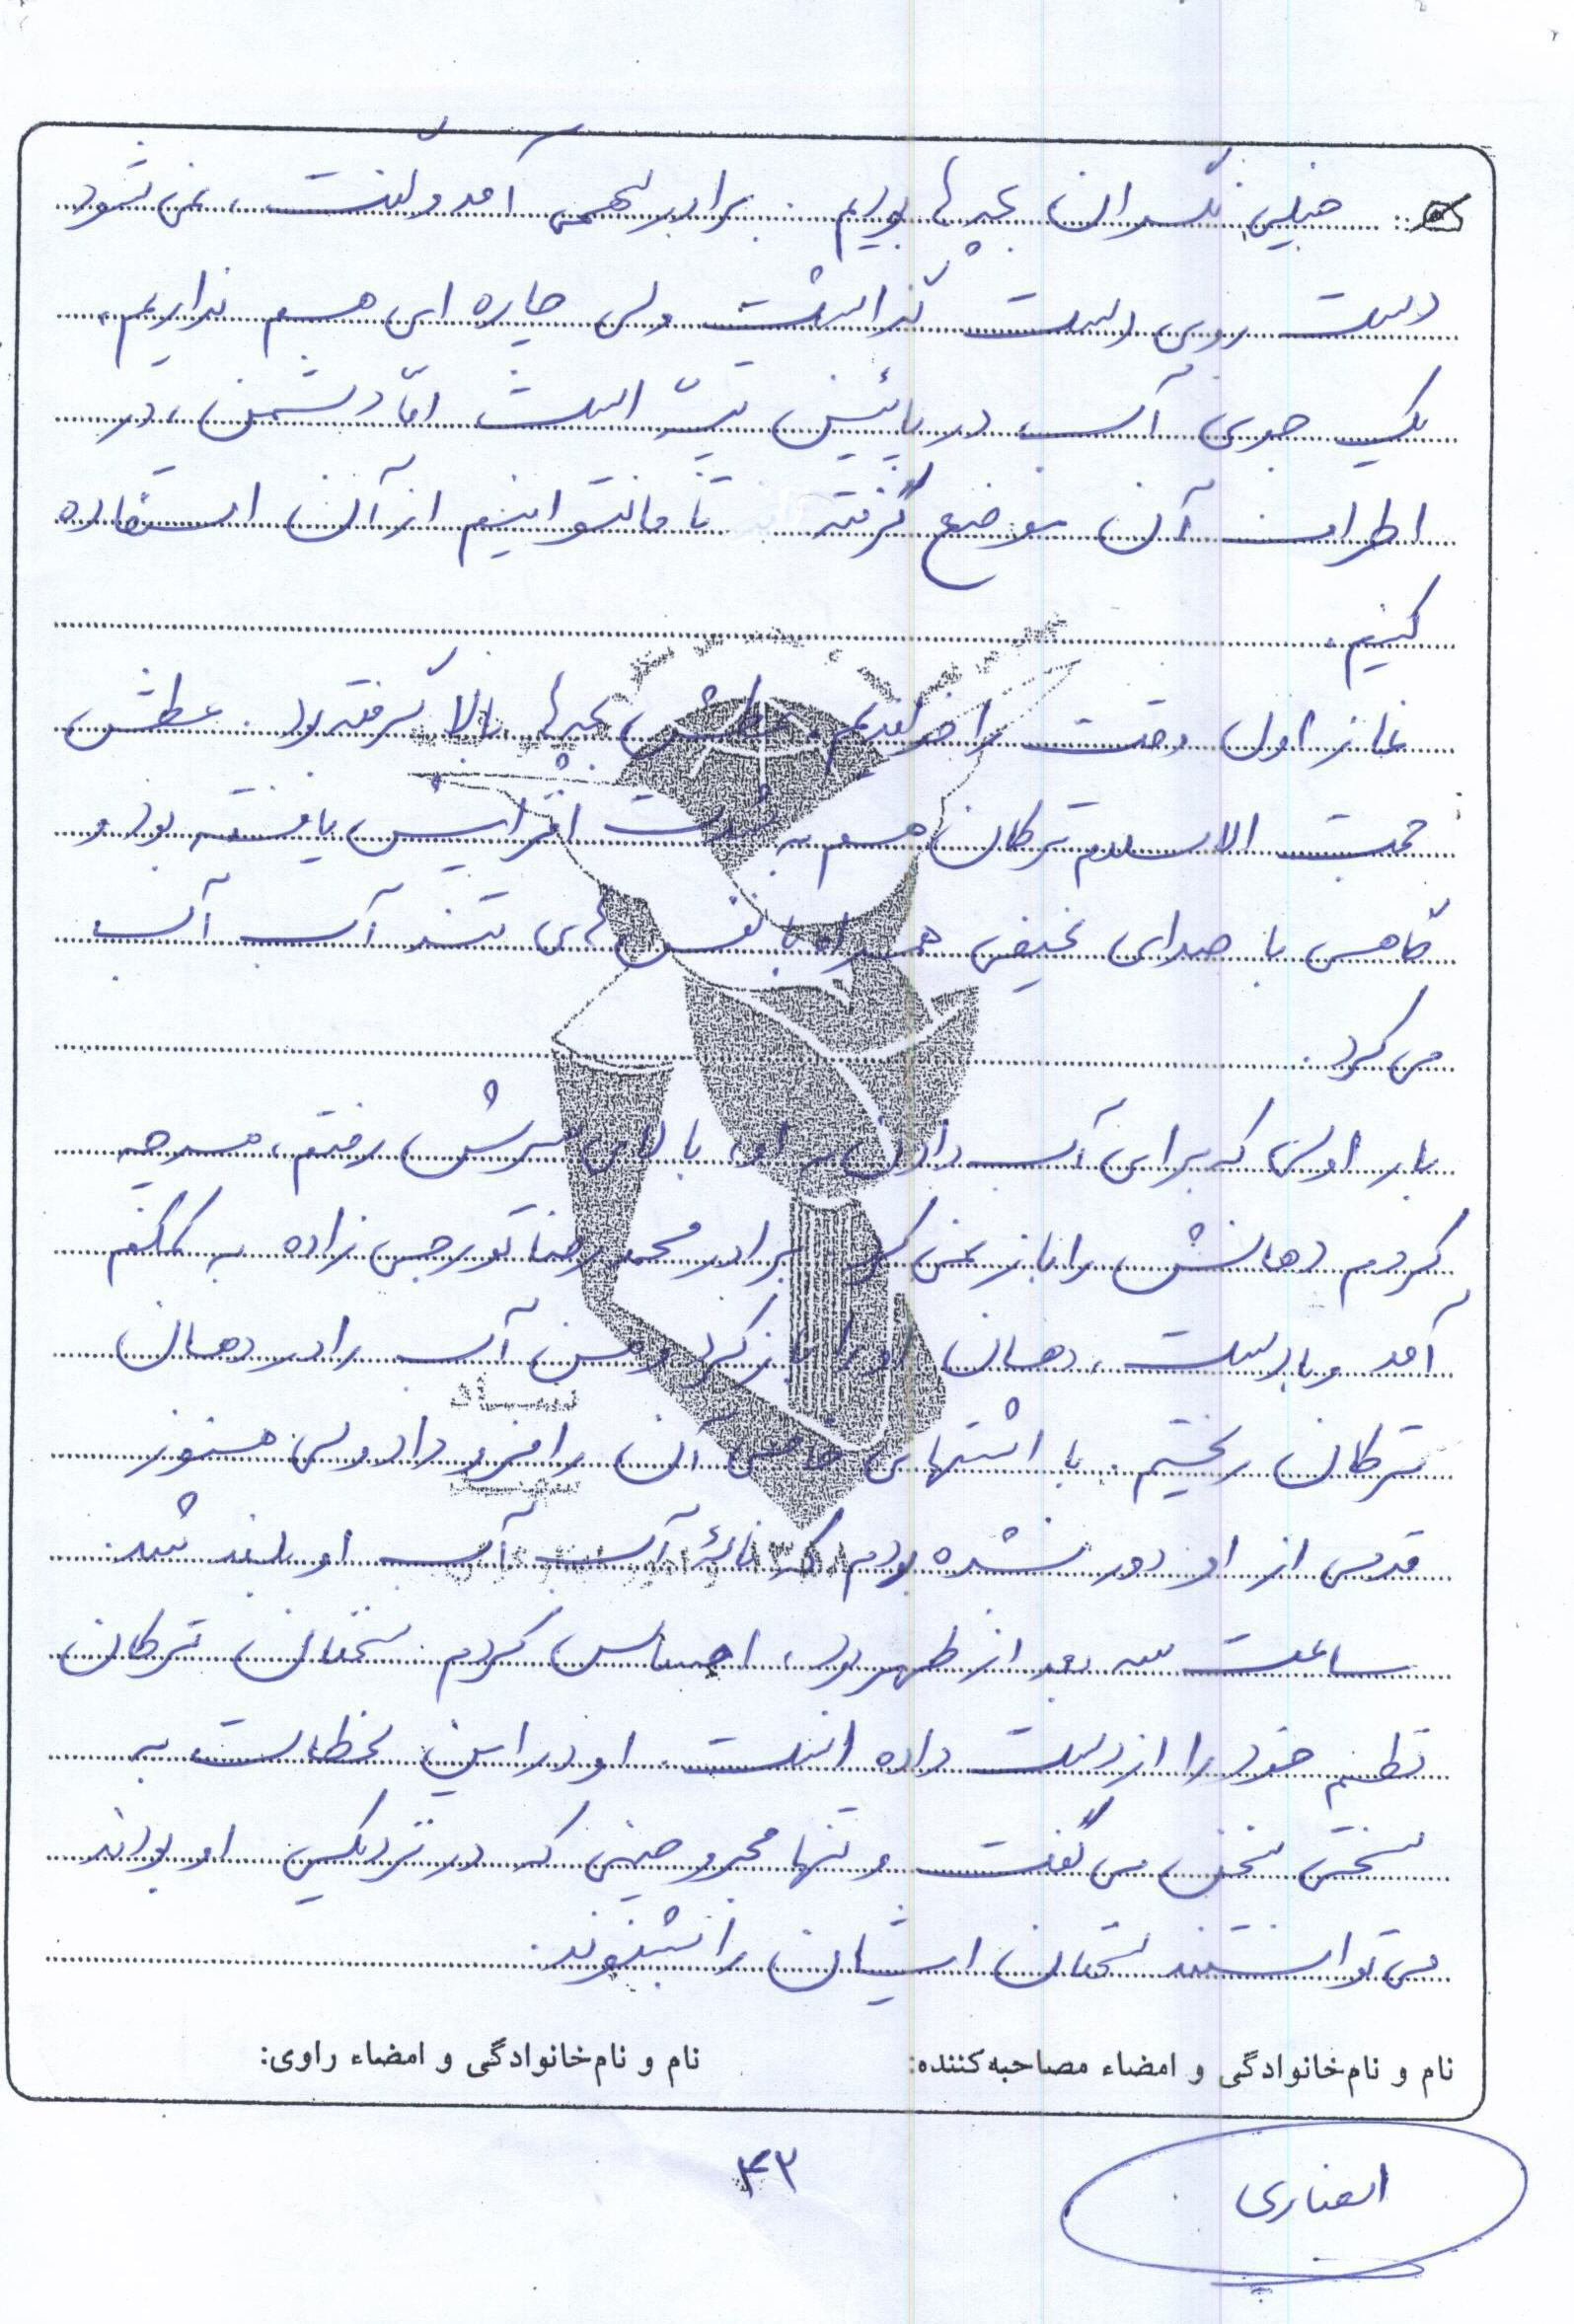 خیلی نگران بچه‌ها بودیم. برادر بهمن آمد و گفت، نمی‌شود
دست روی دست گذاشت ولی چاره‌ای هم نداریم.
یک جوی آب در پائین تپّه است امّا دشمن، در
اطراف آن موضع گرفته تا ما نتوانیم از آن استفاده
کنیم.
نماز اول وقت را خواندیم، عطش بچه‌ها بالا گرفته بود. عطش
حجت الاسلام ترکان هم به شدت افزایش یافته بود و
گاهی با صدای نحیفی همراه با نفس‌های تند آب آب
می‌کرد.
بار اولی که برای آب دادن به او، بالای سرش رفتم، هرچه
کردم دهانش را باز نمی‌کرد برادر محمدرضا تورجی‌زاده به کمکم
آمد و با دست، دهان او را باز کرد و من آب را در دهان
ترکان ریختم. با اشتهای خاصی آن را فرو داد ولی هنوز
قدمی از او دور نشده بودم که نالهٔ آب آب او بلند شد.
ساعت سه بعد از ظهر بود، احساس کردم سخنان ترکان
نظم خود را از دست داده است. او در این لحظات به
سختی سخن می‌گفت و تنها مجروحینی که در نزدیکی او بودند
می‌توانستند سخنان ایشان را بشنوند.
نام و نام‌خانوادگی و امضاء مصاحبه‌کننده: نام و نام‌خانوادگی و امضاء راوی:
۴۲
انصاری